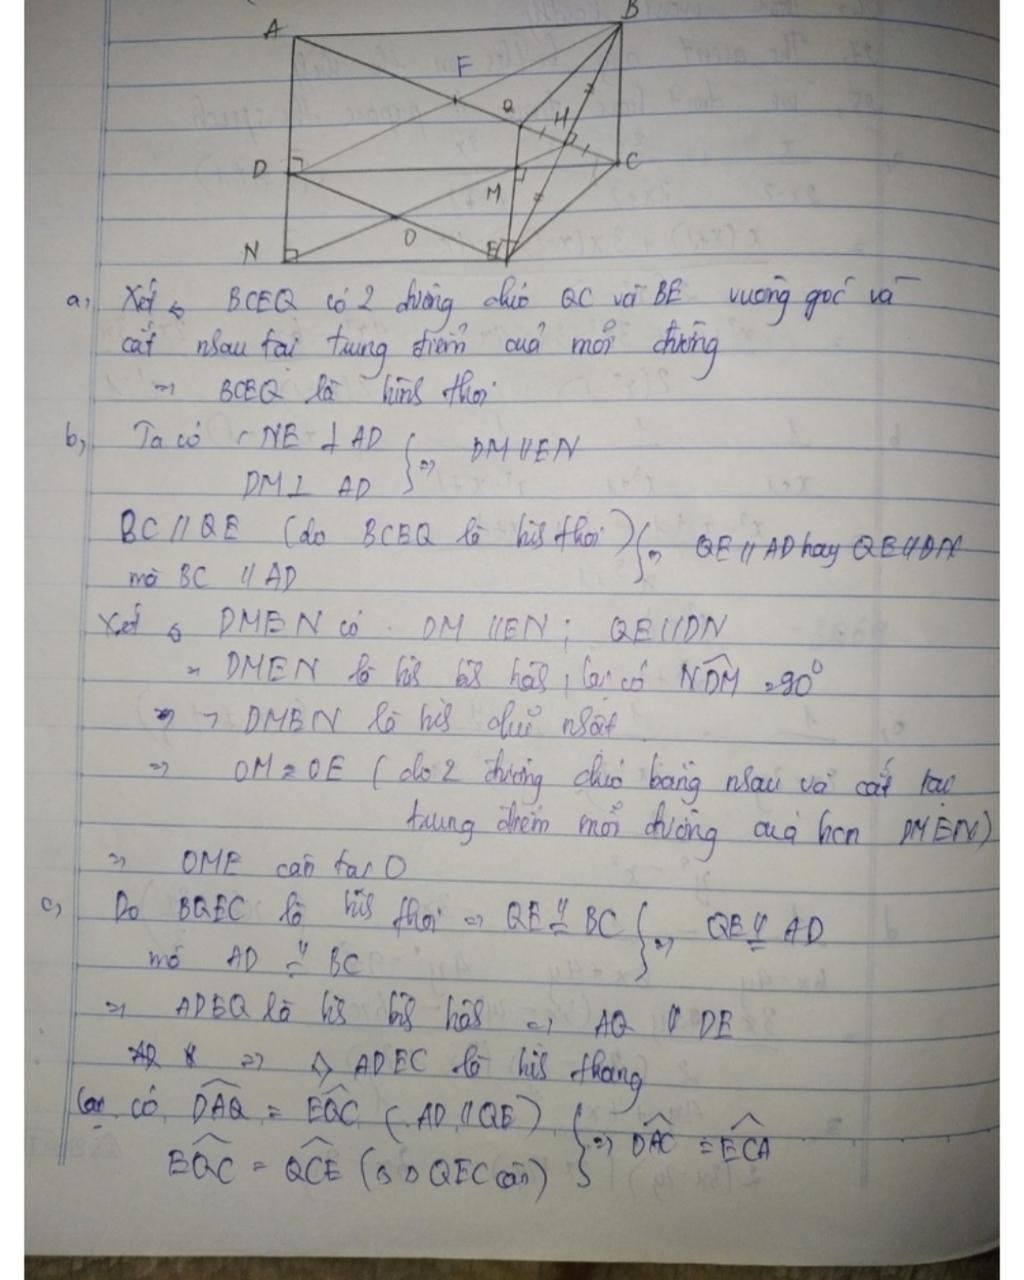 A
B
F
Q
H
D
C
M
N
O
E
a, Xét ◊ BCEQ có 2 đường chéo QC và BE vuông góc và
cắt nhau tại trung điểm của mỗi đường
⇒ BCEQ là hình thoi
b, Ta có NE ⊥ AD
DM ⊥ AD } ⇒ DM // EN
BC // QE (do BCEQ là hình thoi)
mà BC // AD } ⇒ QE // AD hay QE // DN
Xét ◊ DMEN có DM // EN ; QE // DN
⇒ DMEN là hình bình hành, lại có NDM = 90⁰
⇒ DMEN là hình chữ nhật
⇒ OM = OE (do 2 đường chéo bằng nhau và cắt tại
trung điểm mỗi đường của hcn DMEN)
⇒ OME cân tại O
c, Do BQEC là hình thoi ⇒ QE // = BC
mà AD // = BC } ⇒ QE // = AD
⇒ ADEQ là hình bình hành ⇒ AQ // DE
⇒ ◊ ADEC là hình thang
Lại có DAQ = EQC (AD // QE)
EQC = QCE (do Δ QEC cân) } ⇒ DAC = ECA